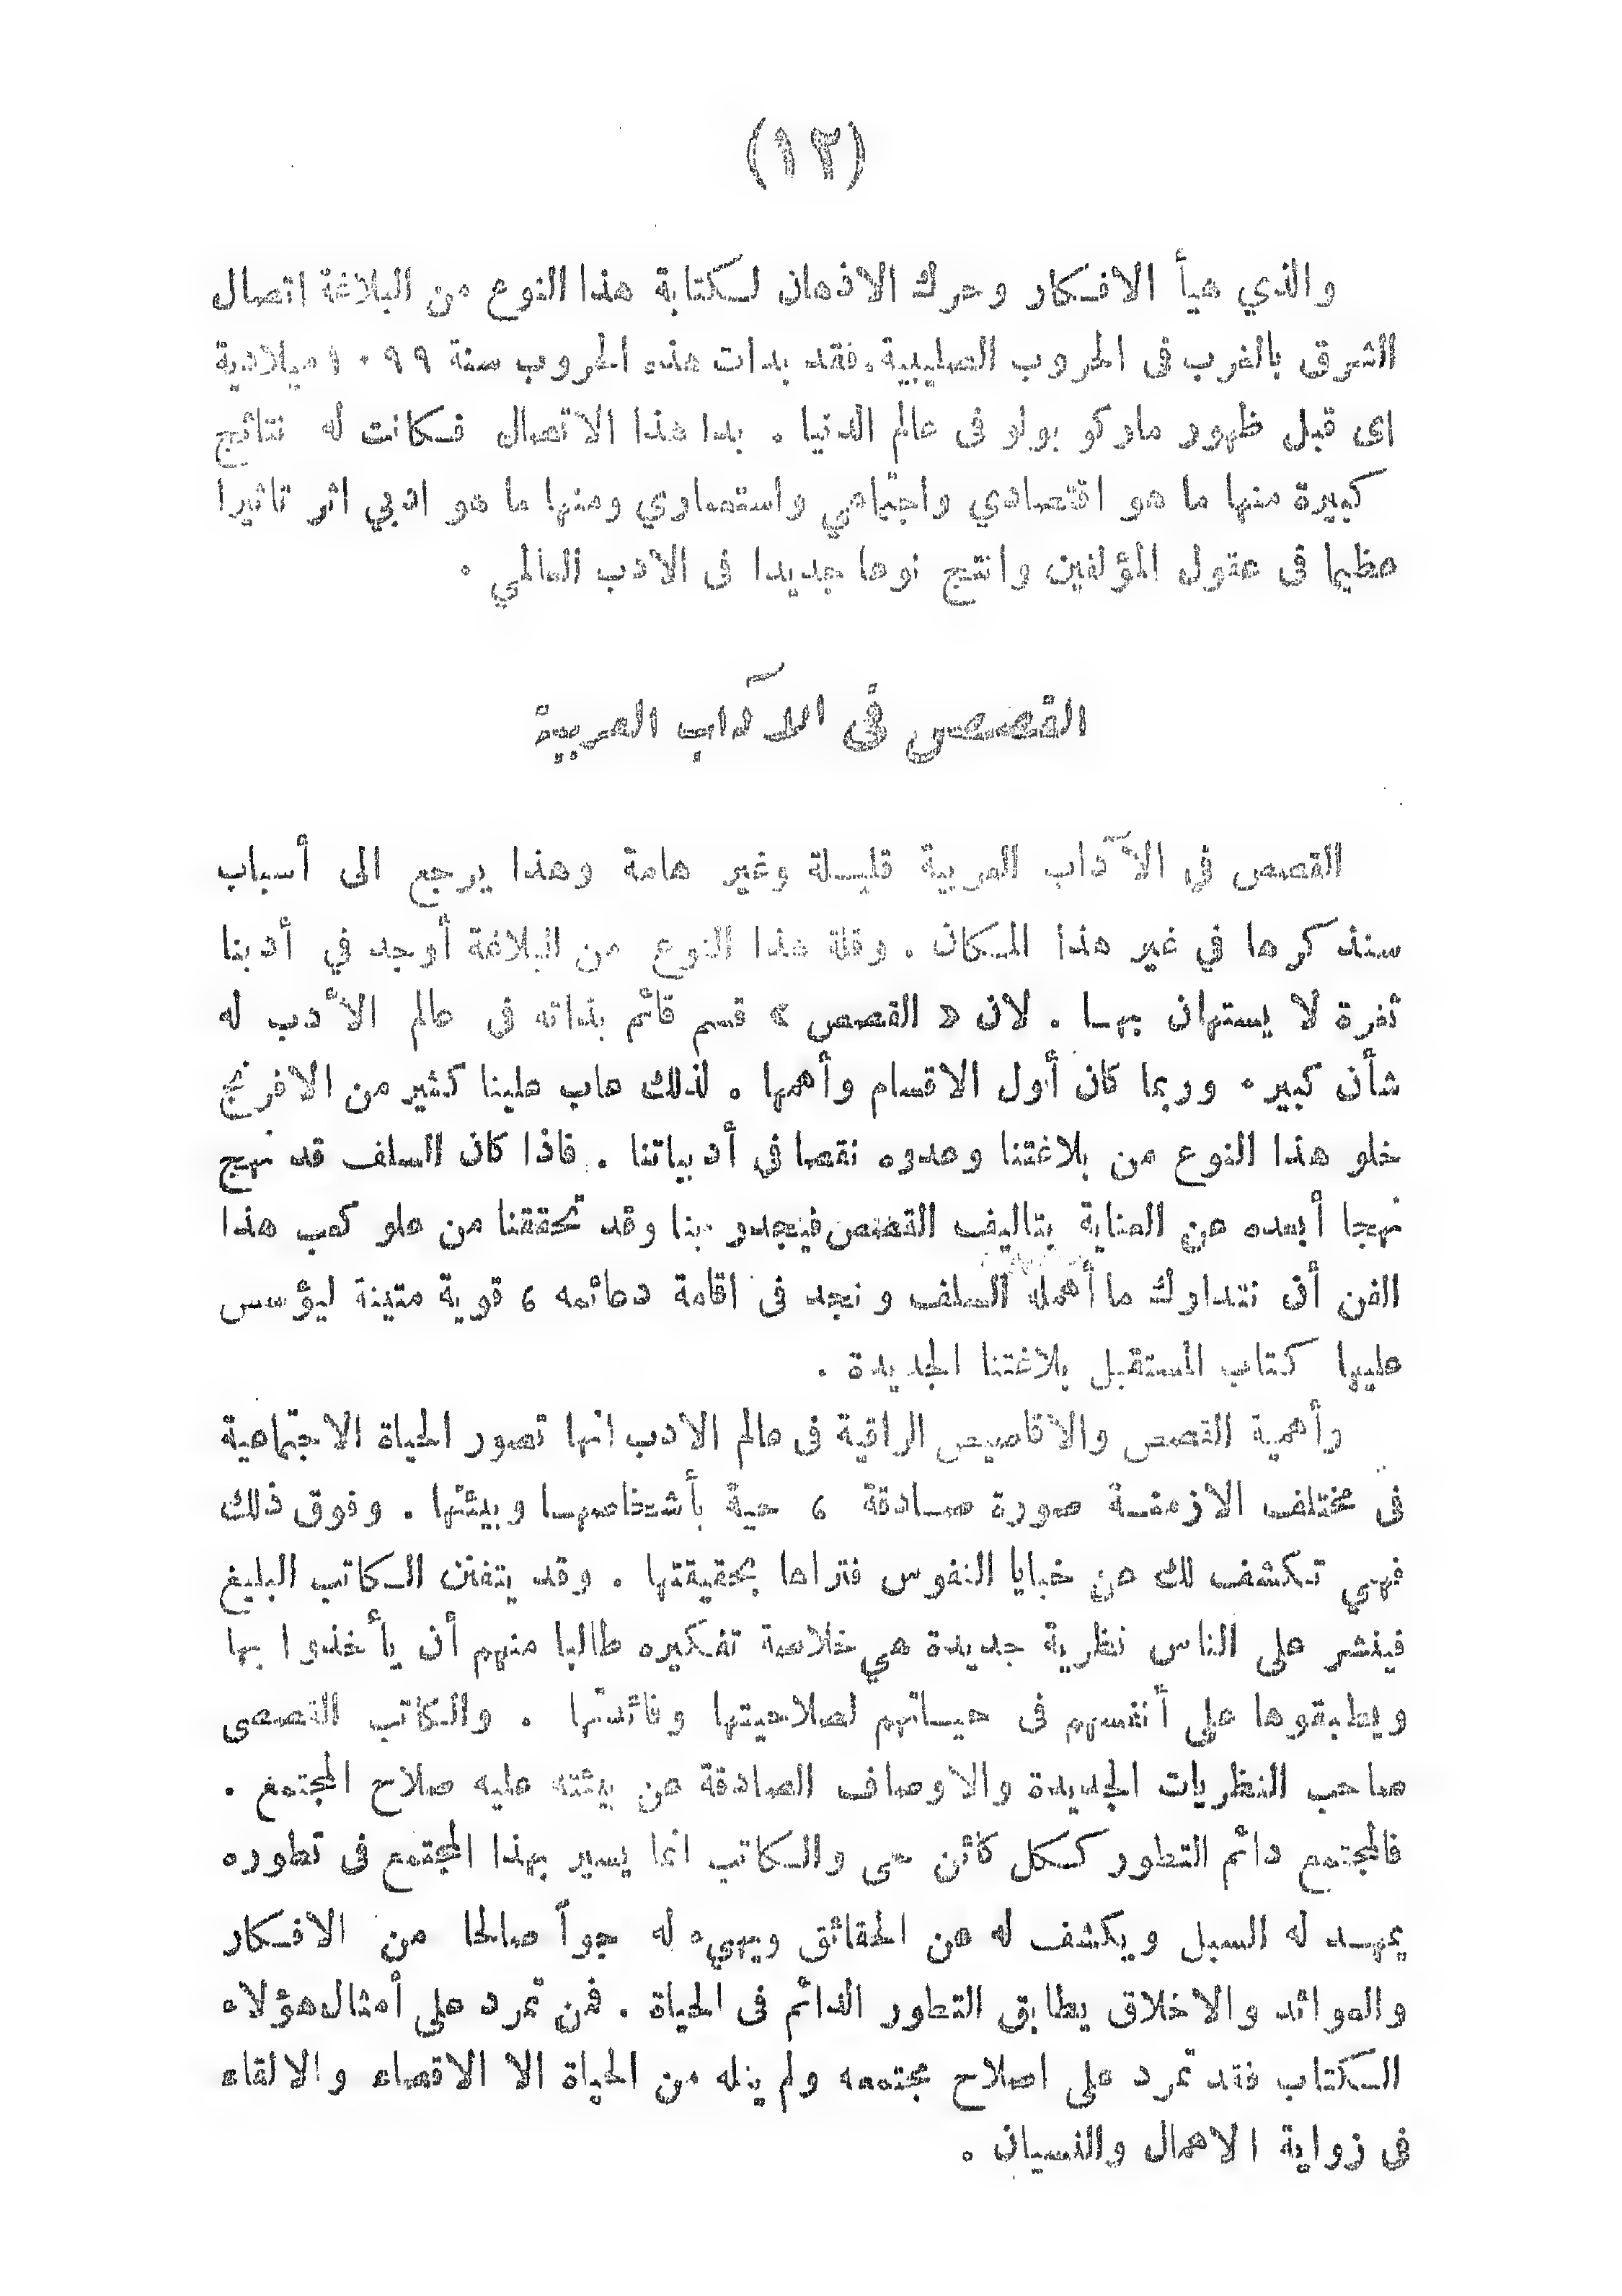 (١٢)
والذي هيأ الافكار وحرك الاذهان لكتابة هذا النوع من البلاغة اتصال
الشرق بالغرب فى الحروب الصليبية. فقد بدات هذه الحروب سنة ١٠٩٩ ميلادية
اى قبل ظهور ماركو بولو فى عالم الدنيا . بدا هذا الاتصال فكانت له نتائج
كبيرة منها ما هو اقتصادي واجتماعي واستعماري ومنها ما هو ادبي اثر تاثيرا
عظيما فى عقول المؤلفين وانتج نوعا جديدا فى الادب العالمي .
القصص فى الآداب العربية
القصص فى الآداب العربية قليلة وغير هامة وهذا يرجع الى أسباب
سنذكرها في غير هذا المكان . وقلة هذا النوع من البلاغة أوجد في أدبنا
ثغرة لا يستهان بها . لان « القصص » قسم قائم بذاته فى عالم الأدب له
شأن كبير . وربما كان أول الاقسام وأهمها . لذلك عاب علينا كثير من الافرنج
خلو هذا النوع من بلاغتنا وعدوه نقصا فى أدبياتنا . فاذا كان السلف قد نهج
نهجا أبعده عن العناية بتاليف القصص فيجدر بنا وقد تحققنا من علو كعب هذا
الفن أن نتدارك ما أهمله السلف و نجد فى اقامة دعائمه ، قوية متينة ليؤسس
عليها كتاب المستقبل بلاغتنا الجديدة .
وأهمية القصص والاقاصيص الراقية فى عالم الادب انها تصور الحياة الاجتماعية
فى مختلف الازمنة صورة صادقة ، حية بأشخاصها وبيئتها . وفوق ذلك
فهي تكشف لك عن خبايا النفوس فتراها بحقيقتها . وقد يتفنن الكاتب البليغ
فينشر على الناس نظرية جديدة هي خلاصة تفكيره طالبا منهم أن يأخذوا بها
ويطبقوها على أنفسهم فى حياتهم لصلاحيتها وفائدتها . والكاتب القصصى
صاحب النظريات الجديدة والاوصاف الصادقة عن بيئته عليه صلاح المجتمع .
فالمجتمع دائم التطور ككل كائن حى والكاتب انما يسير بهذا المجتمع فى تطوره
يمهد له السبل ويكشف له عن الحقائق ويهيء له جواً صالحا من الافكار
والعوائد والاخلاق يطابق التطور الدائم فى الحياة . فمن تمرد على أمثال هؤلاء
الكتاب فقد تمرد على اصلاح مجتمعه ولم ينله من الحياة الا الاقصاء والالقاء
فى زواية الاهمال والنسيان .